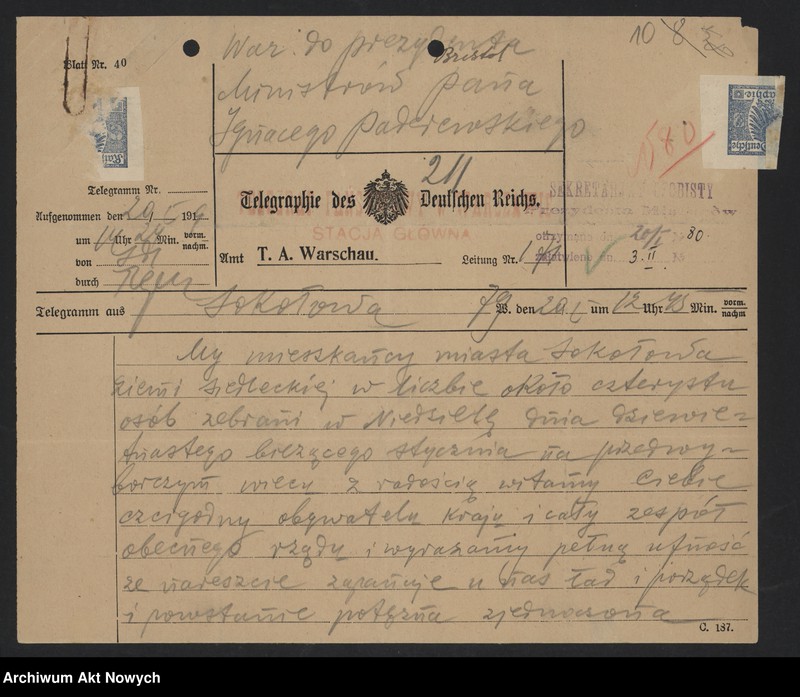 Blatt Nr. 40
War. do prezydenta
Bristol
Ministrów Pana
Ignacego Paderewskiego
10 8
580
211
Deutsche
Telegramm Nr.
Aufgenommen den 20 I 191
um 14 Uhr 24 Min. vorm. nachm.
von
durch
Telegraphie des Deutschen Reichs.
STACJA GŁÓWNA
Amt T. A. Warschau.
Leitung Nr.
SEKRETARJAT OSOBISTY
Prezydenta Ministrów
otrzymano dn. 20/I № 80
załatwiono dn. 3 II №
Telegramm aus Sokołowa 79 W. den 20 I um 12 Uhr 45 Min. vorm. nachm
My mieszkańcy miasta Sokołowa
ziemi siedleckiej w liczbie około czterystu
osób zebrani w Niedzielę dnia dziewię-
tnastego bieżącego stycznia na przedwy-
borczym wiecu z radością witamy Ciebie
czcigodny obywatelu kraju i cały zespół
obecnego rządu i wyrażamy pełną ufność
że nareszcie zapanuje u nas ład i porządek
i powstanie potężna zjednoczona
C. 187.
Archiwum Akt Nowych